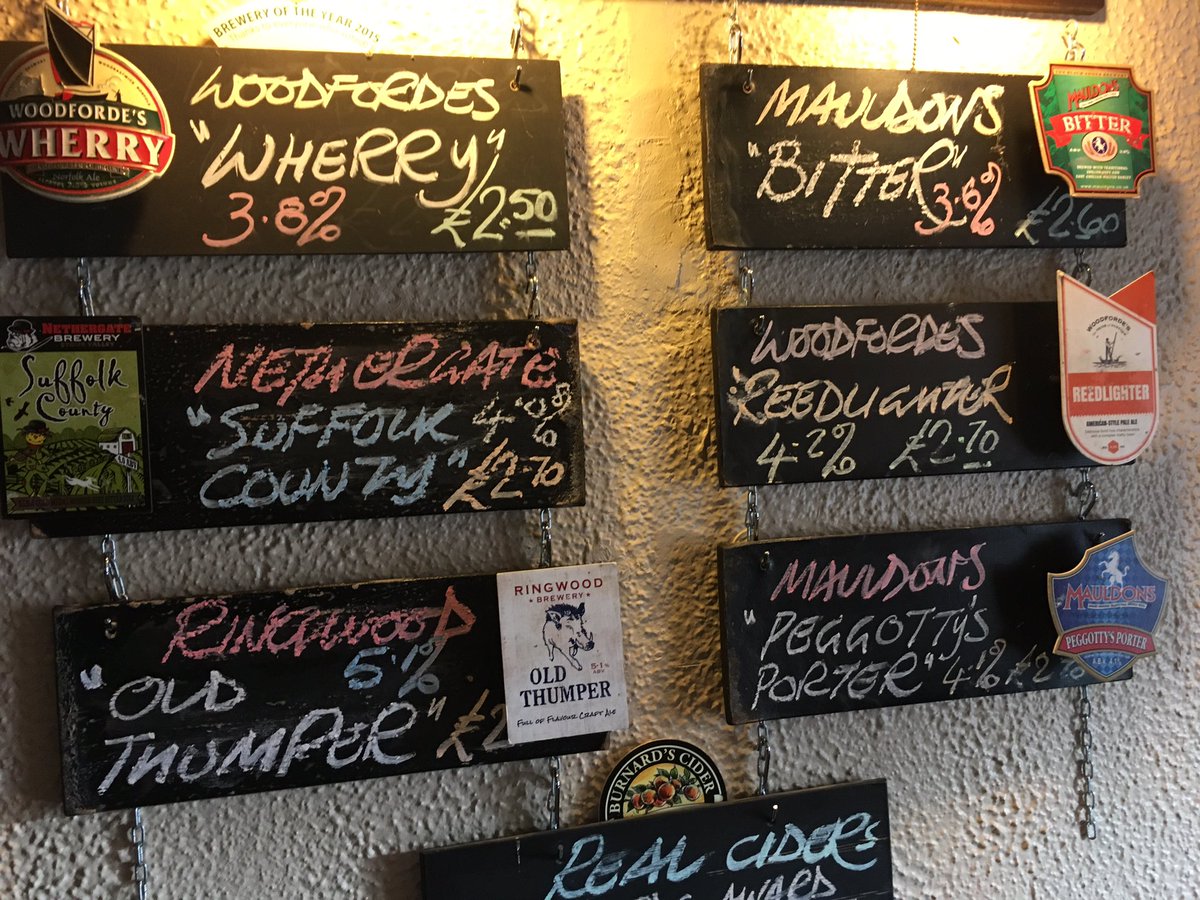 BREWERY OF THE YEAR 2015
WOODFORDE'S
WHERRY
Norfolk Ale
WOODFORDES
"WHERRY"
3.8% £2.50
MAULDONS
"BITTER"
3.6% £2.60
MAULDONS
BITTER
NETHERGATE
BREWERY
Suffolk
County
NETHERGATE
"SUFFOLK
COUNTY"
4.0%
£2.70
WOODFORDES
"REEDLIGHTER
4.2% £2.70
WOODFORDE'S
REEDLIGHTER
AMERICAN-STYLE PALE ALE
RINGWOOD
5.1%
"OLD
THUMPER" £2
RINGWOOD
BREWERY
5.1%
ABV
OLD
THUMPER
FULL OF FLAVOUR CRAFT ALE
MAULDONS
"PEGGOTTY'S
PORTER" 4.1% £2.
MAULDONS
PEGGOTTY'S PORTER
A.B.V. 4.1%
BURNARD'S CIDER
REAL CIDERS
AWARD